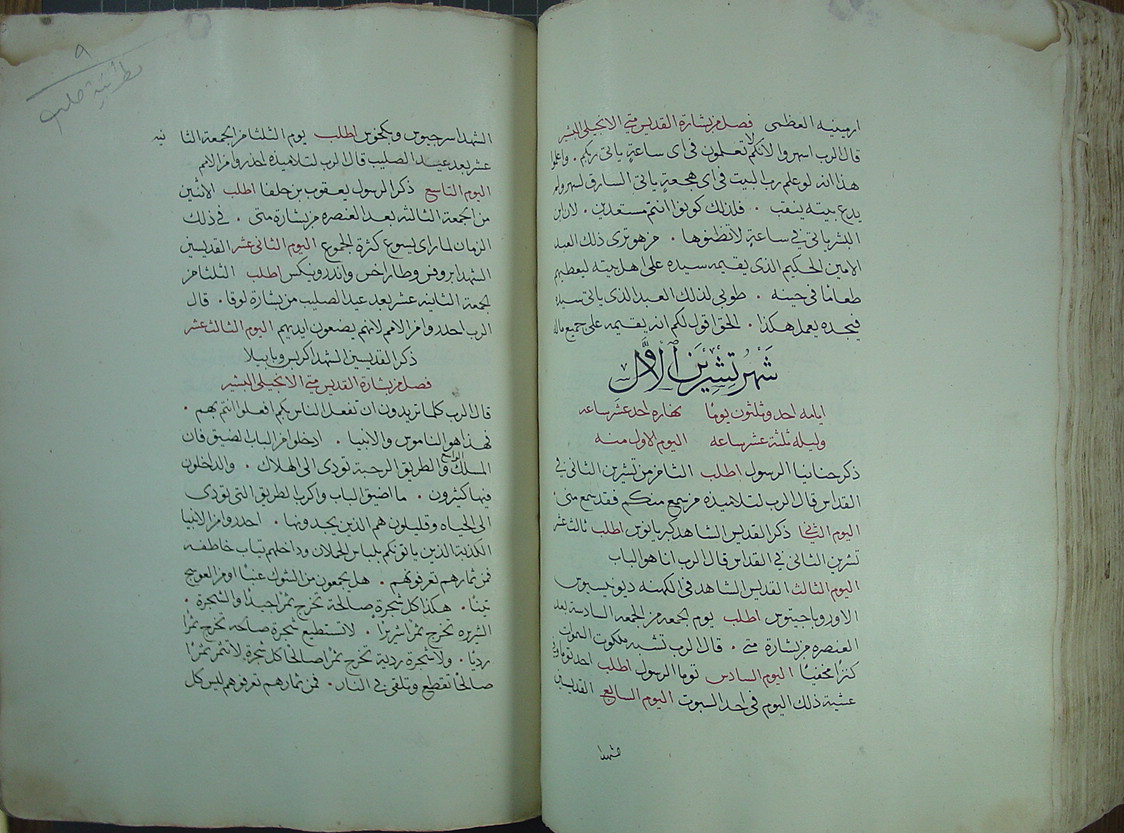 ارمينيه العظمى فصل من بشارة القديس متى الانجيلي البشير
قال الرب اسهروا لانكم لا تعلمون في اي ساعة ياتي ربكم . واعلموا
هذا انه لو علم رب البيت في اي هجعة ياتي السارق لسهر ولم
يدع بيته ينقب . فلذلك كونوا انتم مستعدين . لان ابن
البشر ياتي في ساعة لا تظنوها . من هو ترى ذلك العبد
الامين الحكيم الذي يقيمه سيده على اهل بيته ليعطيهم
طعامًا في حينه . طوبى لذلك العبد الذي ياتي سيده
فيجده يعمل هكذا . الحق اقول لكم انه يقيمه على جميع ماله
شَهْر تِشْرِيْنَ الاَوَّل
ايامه احد وثلثون يومًا نهاره احد عشر ساعه
وليله ثلثة عشر ساعه اليوم الاول منه
ذكر حنانيا الرسول اطلب الثامن من تشرين الثاني في
القداس قال الرب لتلاميذه من يسمع منكم فقد سمع مني
اليوم الثاني ذكر القديس الشاهد كبريانوس اطلب ثالث عشر
تشرين الثاني في القداس قال الرب انا هو الباب
اليوم الثالث القديس الشاهد في الكهنه ديونيسيوس
الاوروباجيتوس اطلب يوم الجمعه من الجمعه السادسة بعد
العنصره من بشارة متى . قال الرب تشبه ملكوت السموات
كنزًا مخفيًا اليوم السادس توما الرسول اطلب احد توما في
عشية ذلك اليوم في احد السبوت اليوم السابع القديسين
الشهدا
الشهدا سرجيوس وبكخوس اطلب يوم الثلثا من الجمعة الثا نيه
عشر بعد عيد الصليب قال الرب لتلاميذه احذروا من الامم
اليوم التاسع ذكر الرسول يعقوب بن حلفا اطلب الاثنين
من الجمعة الثالثه بعد العنصره من بشارة متى . في ذلك
الزمان لما راى يسوع كثرة الجموع اليوم الثاني عشر القديسين
الشهدا بروفس وطاراخس واندرونيكس اطلب الثلثا من
الجمعة الثانيه عشر بعد عيد الصليب من بشارة لوقا . قال
الرب احذروا من الامم لانهم يضعون ايديهم اليوم الثالث عشر
ذكر القديسين الشهدا كربس وبابيلا
فصل من بشارة القديس متى الانجيلي البشير
قال الرب كلما تريدون ان تفعل الناس بكم افعلوا انتم بهم .
فهذا هو الناموس والانبيا . ادخلوا من الباب الضيق فان
المسلك الواسع والطريق الرحبة تودي الى الهلاك . والداخلون
فيها كثيرون . ما اضيق الباب واكرب الطريق التي تودي
الى الحياه وقليلون هم الذين يجدونها . احذروا من الانبيا
الكذبة الذين ياتونكم بلباس الحملان وداخلهم دياب خاطفه
فمن ثمارهم تعرفونهم . هل يجمعون من الشوك عنبًا او من العوسج
تينًا . هكذا كل شجرة صالحة تخرج ثمرًا جيدًا والشجرة .
الشريره تخرج ثمرًا شريرًا . لا تستطيع شجرة صالحه تخرج ثمرًا
رديًا . ولا شجرة ردية تخرج ثمرًا صالحًا كل شجرة لا تثمر ثمرًا
صالحًا تقطع وتلقى في النار . فمن ثمارهم تعرفوهم ليس كل
٩
مطرانية حلب